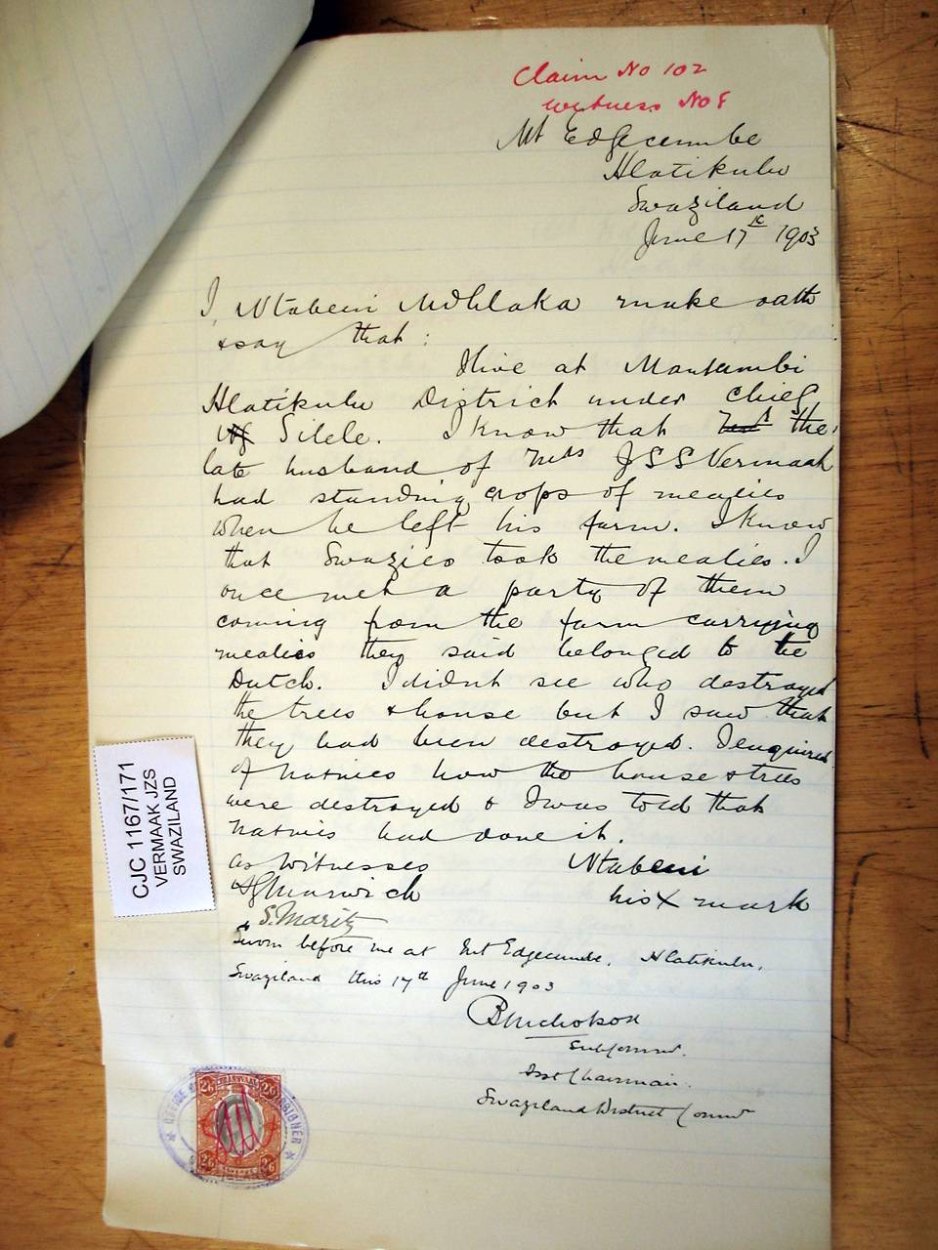 Claim No 102
Witness No 8
Mt Edgecumbe
Hlatikulu
Swaziland
June 17th 1903
I, Ntabeni Mdhlaka make oath
& say that:
I live at Mantambi
Hlatikulu District under chief
Silele. I know that the
late husband of Mrs J S S Vermaak
had standing crops of mealies
when he left his farm. I know
that Swazies took the mealies. I
once met a party of them
coming from the farm carrying
mealies they said belonged to the
Dutch. I didn't see who destroyed
the trees & house but I saw that
they had been destroyed. I enquired
of natives how the house & trees
were destroyed & I was told that
natives had done it.
as Witnesses
Ntabeni
his X mark
Marwick
S. Maritz
Sworn before me at Mt Edgecumbe, Hlatikulu,
Swaziland this 17th June 1903
B Nicholson
Subcomr.
Asst Chairman.
Swaziland District Comr
CJC 1167/171
VERMAAK JZS
SWAZILAND
OFFICE
2/6 2/6
2/6 2/6